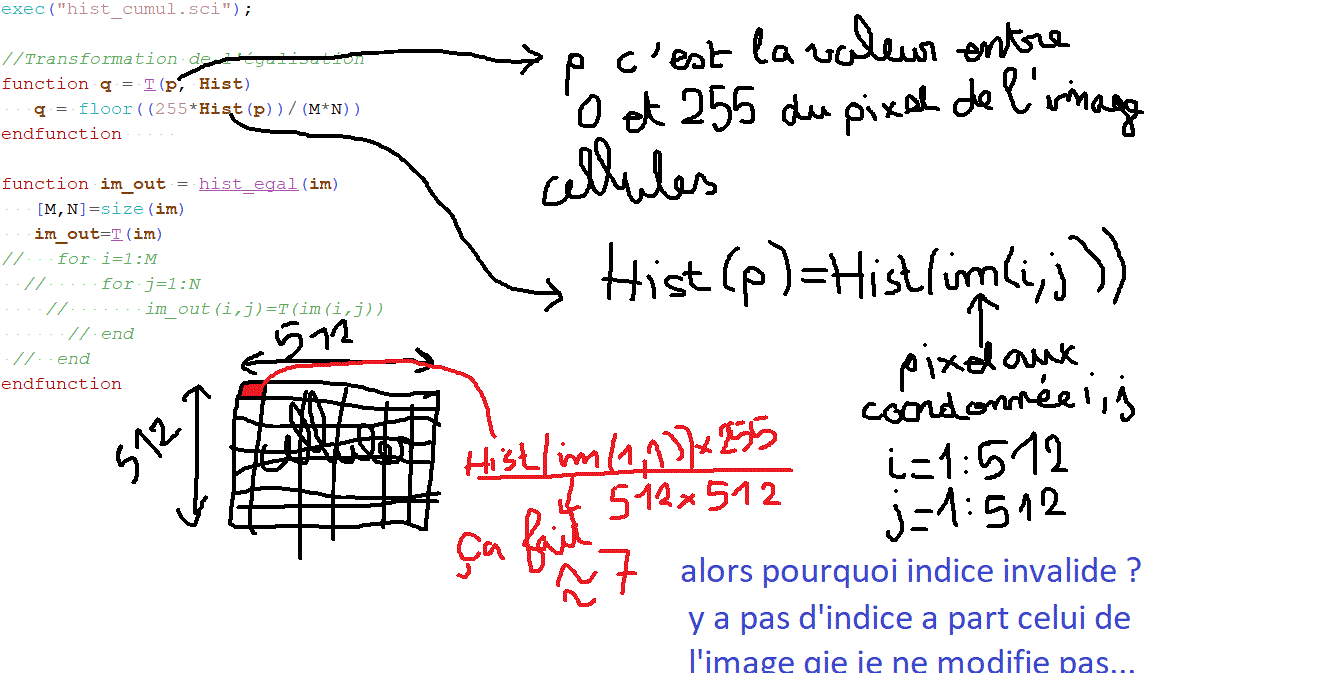 exec("hist_cumul.sci");
//Transformation de l'égalisation
function q = T(p, Hist)
q = floor((255*Hist(p))/(M*N))
endfunction
function im_out = hist_egal(im)
[M,N]=size(im)
im_out=T(im)
// for i=1:M
// for j=1:N
// im_out(i,j)=T(im(i,j))
// end
// end
endfunction
p c'est la valeur entre
0 et 255 du pixel de l'image
cellules
Hist(p)=Hist(im(i,j))
pixel aux
coordonnée i, j
i=1:512
j=1:512
512
512
cellules
Hist(im(1,1))x255
512x512
ça fait
≈7
alors pourquoi indice invalide ?
y a pas d'indice a part celui de
l'image qie je ne modifie pas...